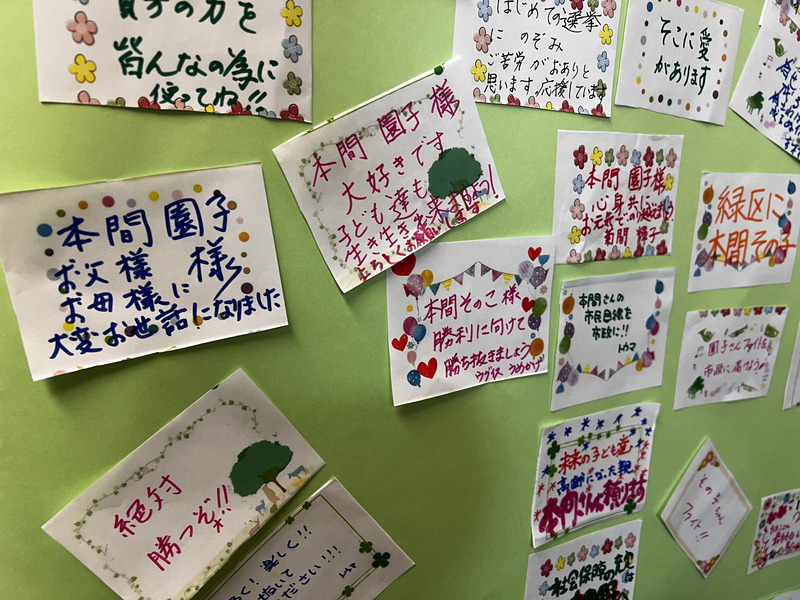 子の力を
皆んなの為に
使ってね!!
はじめての選挙
に のぞみ
ご苦労がおありと
思います。応援しています
そこに愛
があります
本間 園子 様
大好きです
子ども達も
生き生き
よろしくお願いします
本間 園子様
心身共に
お元気で
本間 園子
お父様 様
お母様に
大変お世話になりました
緑区に
本間その子
本間そのこ様
勝利に向けて
勝ち抜きましょう
ウグイス うめかげ
本間さんの
市民目線を
市政に!!
トウマ
園子さんファイト
市政に
絶対
勝つぞ!!
の子ども達
高齢になった親
本間さんに頼ります
そのちゃん
ファイト!!
社会保障の充実